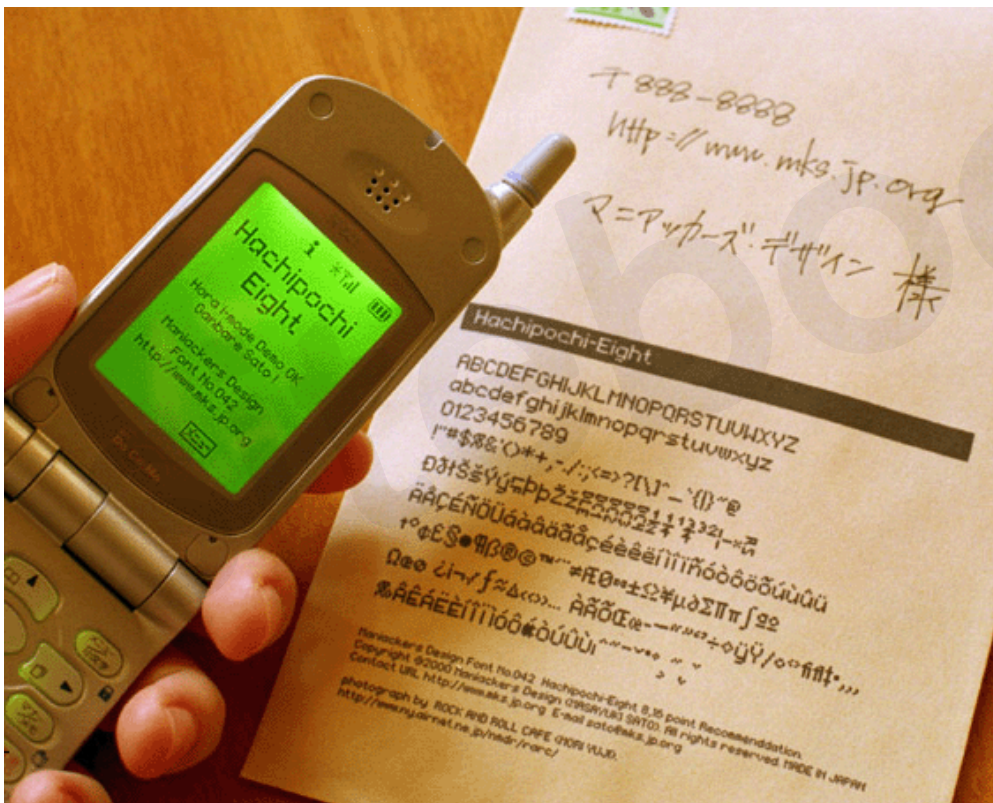 i
Hachipochi
Eight
Hora i-mode Demo OK
Ganbare Sato !
Maniackers Design
Font No.042
http://www.mks.jp.org
メニュー
DoCoMo
〒888-8888
http://www.mks.jp.org
マニアッカーズ・デザイン 様
Hachipochi-Eight
ABCDEFGHIJKLMNOPQRSTUVWXYZ
abcdefghijklmnopqrstuvwxyz
0123456789
!"#$%&'()*+,-./:;<=>?[\]^_`{|}~@
ÐðłŠšÝýÞþŽž
ÄÅÇÉÑÖÜáàâäãåçéèêëíìîïñóòôöõúùûü
†°¢£§●¶ß®©™´¨≠ÆØ∞±≤≥¥µ∂ΣΠπ∫ªº
Ωæø ¿¡¬√ƒ≈∆«»… ÀÃÕŒœ-—“”‘’÷◊ÿŸ/¤‹›fifl‡·‚„
‰ÂÊÁËÈÍÎÏÌÓÔÒÚÛÙı
Maniackers Design Font No.042 Hachipochi-Eight 8,16 point Recommenddation.
Copyright ©2000 Maniackers Design (MASAYUKI SATO). All rights reserved. MADE IN JAPAN
Contact URL http://www.mks.jp.org E-mail sato@mks.jp.org
photograph by ROCK AND ROLL CAFE (MORI YUJI).
http://www.ny.airnet.ne.jp/nmdr/rarc/